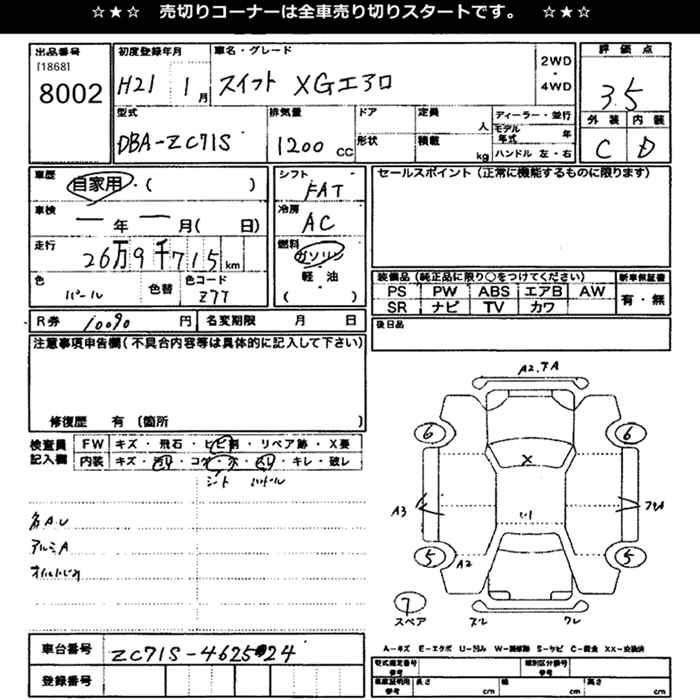 ☆★☆ 売切りコーナーは全車売り切りスタートです。 ☆★☆
出品番号
[1868]
8002
初度登録年月
H21 1月
車名・グレード
スイフト XGエアロ
2WD
・
4WD
評価点
3.5
外装 内装
C D
型式
DBA-ZC71S
排気量
1200 CC
ドア
形状
定員
人
積載
kg
ディーラー・並行
モデル年式 年
ハンドル 左・右
車歴
自家用・( )
シフト
FAT
セールスポイント(正常に機能するものに限ります)
車検
年 月( 日)
冷房
AC
走行
26万9千715km
燃料
ガソリン
軽・油
( )
色
パール
色替
色コード
Z7T
装備品(純正品に限り○をつけてください)
新車保証書
PS PW ABS エアB AW
SR ナビ TV カワ
有・無
R券 10090 円
名変期限 月 日
後日品
注意事項申告欄(不具合内容等は具体的に記入して下さい)
修復歴 有 〔箇所 〕
検査員記入欄
FW キズ・飛石・ヒビ割・リペア跡・X要
内装 キズ・汚れ・コゲ・穴・スレ・キレ・破レ
シート ハンドル
各A.U
アルミA
オイルにじみ
A2.アA
6 6
X
A3
アUA
5 A2 5
7
スペア
アレ アレ
車台番号
ZC71S-462524
登録番号
A-キズ E-エクボ U-凹み W-補修跡 S-サビ C-腐食 XX-交換済
型式指定番号
参考
類別区分番号
参考
車庫証明用
参考
長さ cm
幅 cm
高さ cm